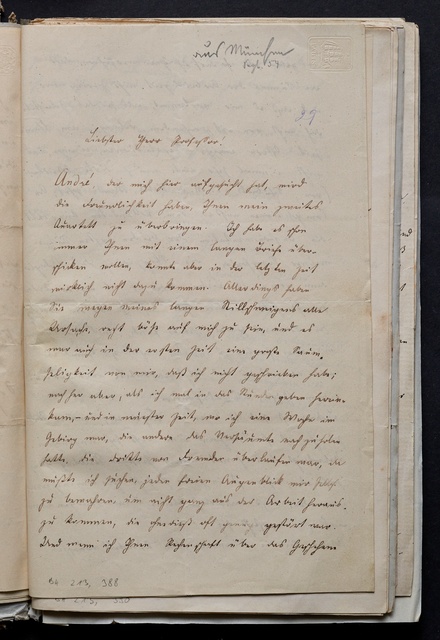 aus München
Sept. 57
29
Liebster Herr Professor!
André, der mich hier aufgesucht hat, wird
die Freundlichkeit haben, Ihnen mein zweites
Quartett zu überbringen. Ich habe es schon
immer Ihnen mit einem langen Briefe über-
schicken wollen, konnte aber in der letzten Zeit
wirklich nicht dazu kommen. Allerdings haben
Sie wegen meines langen Stillschweigens alle
Ursache, recht böse auf mich zu sein, und es
war auch in der ersten Zeit eine große Saum-
seligkeit von mir, daß ich nicht geschrieben habe;
nachher aber, als ich mal in das Stunden geben herein-
kam, – und in nächster Zeit, wo ich eine Woche im
Gebirg war, die andere das Versäumte nachzuholen
hatte, die dritte von Fremden überlaufen war, da
mußte ich suchen, jeden freien Augenblick mir
zu bewahren, um nicht ganz aus der Arbeit heraus-
zu kommen, die ohnedieß oft genug gestört war.
Und wenn ich Ihnen Rechenschaft über das Geschehene
213, 388